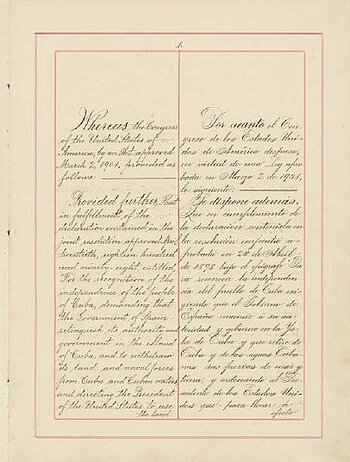 1.
Whereas the Congress
of the United States of
America, by an Act approved
March 2, 1901, provided as
follows:
Provided further That
in fulfillment of the
declaration contained in the
joint resolution approved April
twentieth, eighteen hundred
and ninety-eight, entitled
"For the recognition of the
independence of the people
of Cuba, demanding that
the Government of Spain
relinquish its authority and
government in the island
of Cuba, and to withdraw
its land and naval forces
from Cuba and Cuban waters
and directing the President
of the United States to use
the land
Por cuanto el Con-
greso de los Estados Uni-
dos de América dispuso,
en virtud de una Ley apro-
bada en Marzo 2 de 1901,
lo siguiente:
Se dispone además,
Que en cumplimiento de
la declaración contenida en
la resolución conjunta a-
probada en 20 de Abril
de 1898 bajo el epígrafe "Pa-
ra reconocer la independen-
cia del pueblo de Cuba exi-
giendo que el Gobierno de
España renuncie á su au-
toridad y gobierno en la Is-
la de Cuba y que retire de
Cuba y de las aguas Cuba-
nas sus fuerzas de mar y
tierra, y ordenando al Pre-
sidente de los Estados Uni-
dos que para llevar á
efecto